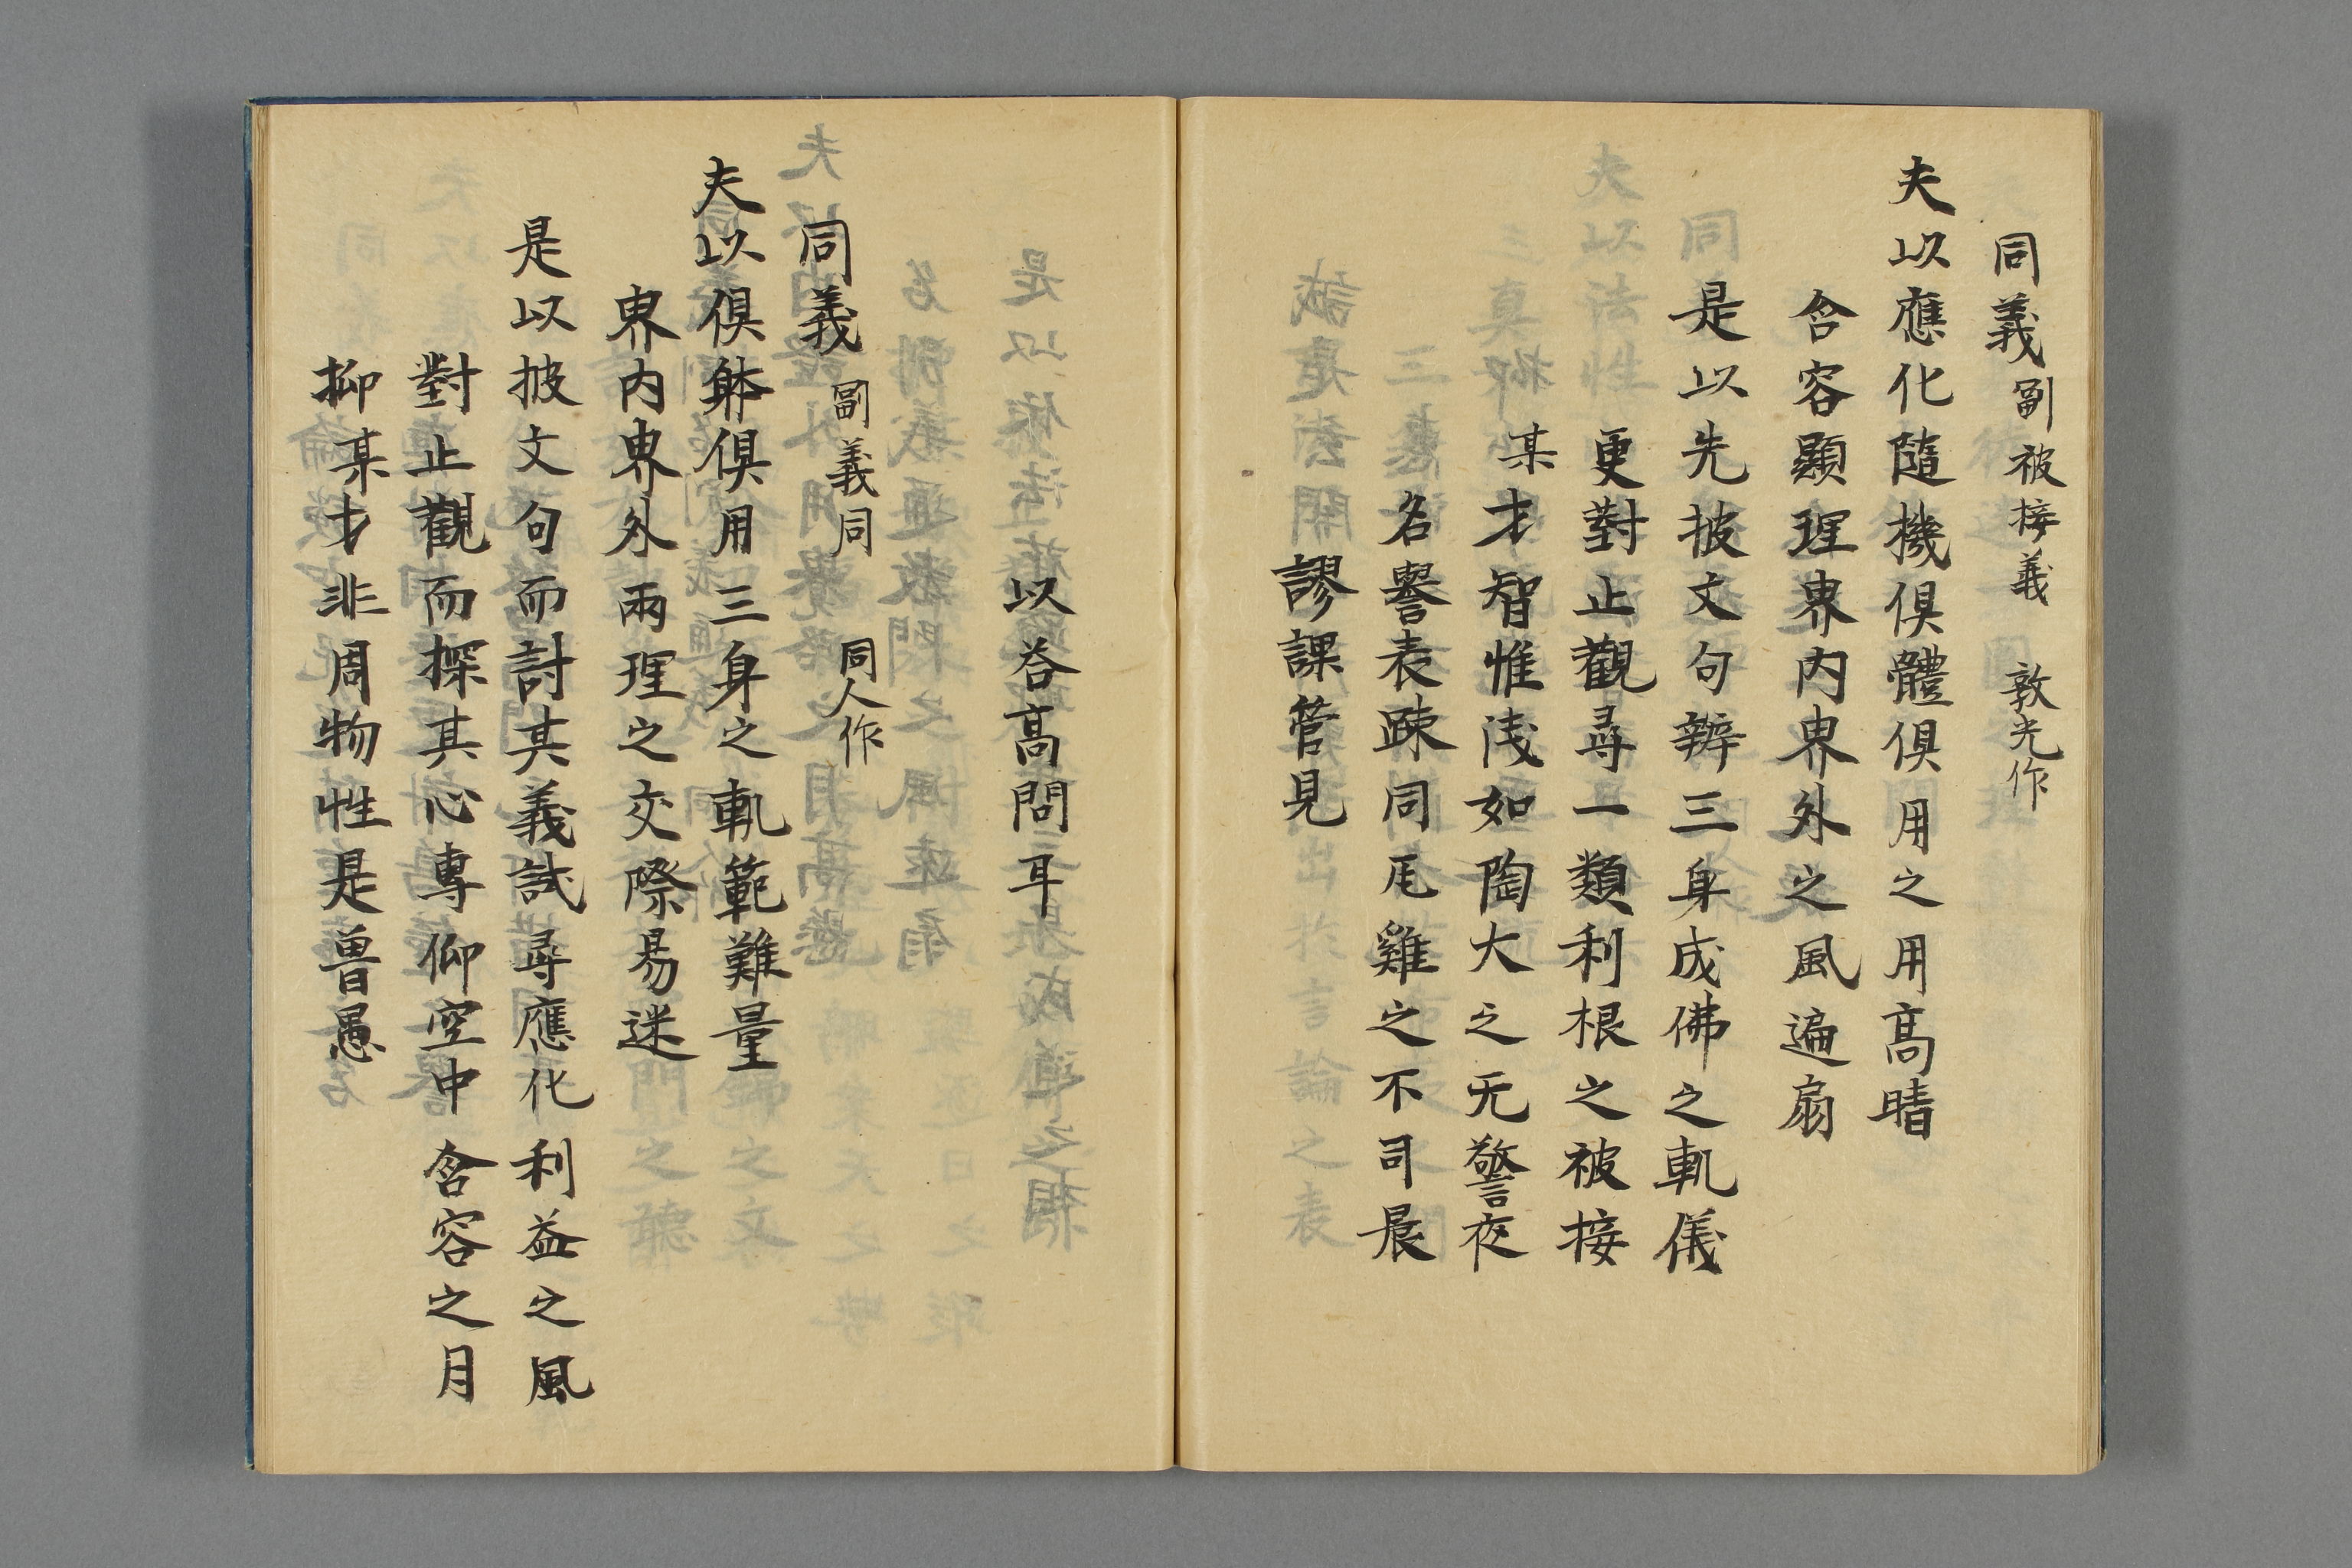 同義副被接義　敦光作
夫以應化隨機倶體倶用之用高晴
含容顯理界内界外之風遍扇
是以先披文句辨三身成佛之軌儀
更對止觀尋一類利根之被接
某才智惟浅如陶犬之无警夜
名譽表疎同瓦雞之不司晨
謬課管見
以荅高問耳
同義　副義同　同人作
夫以倶躰倶用三身之軌範難量
界内界外兩理之交際易迷
是以披文句而討其義試尋應化利益之風
對止觀而探其心專仰空中含容之月
抑某才非周物性是曽愚